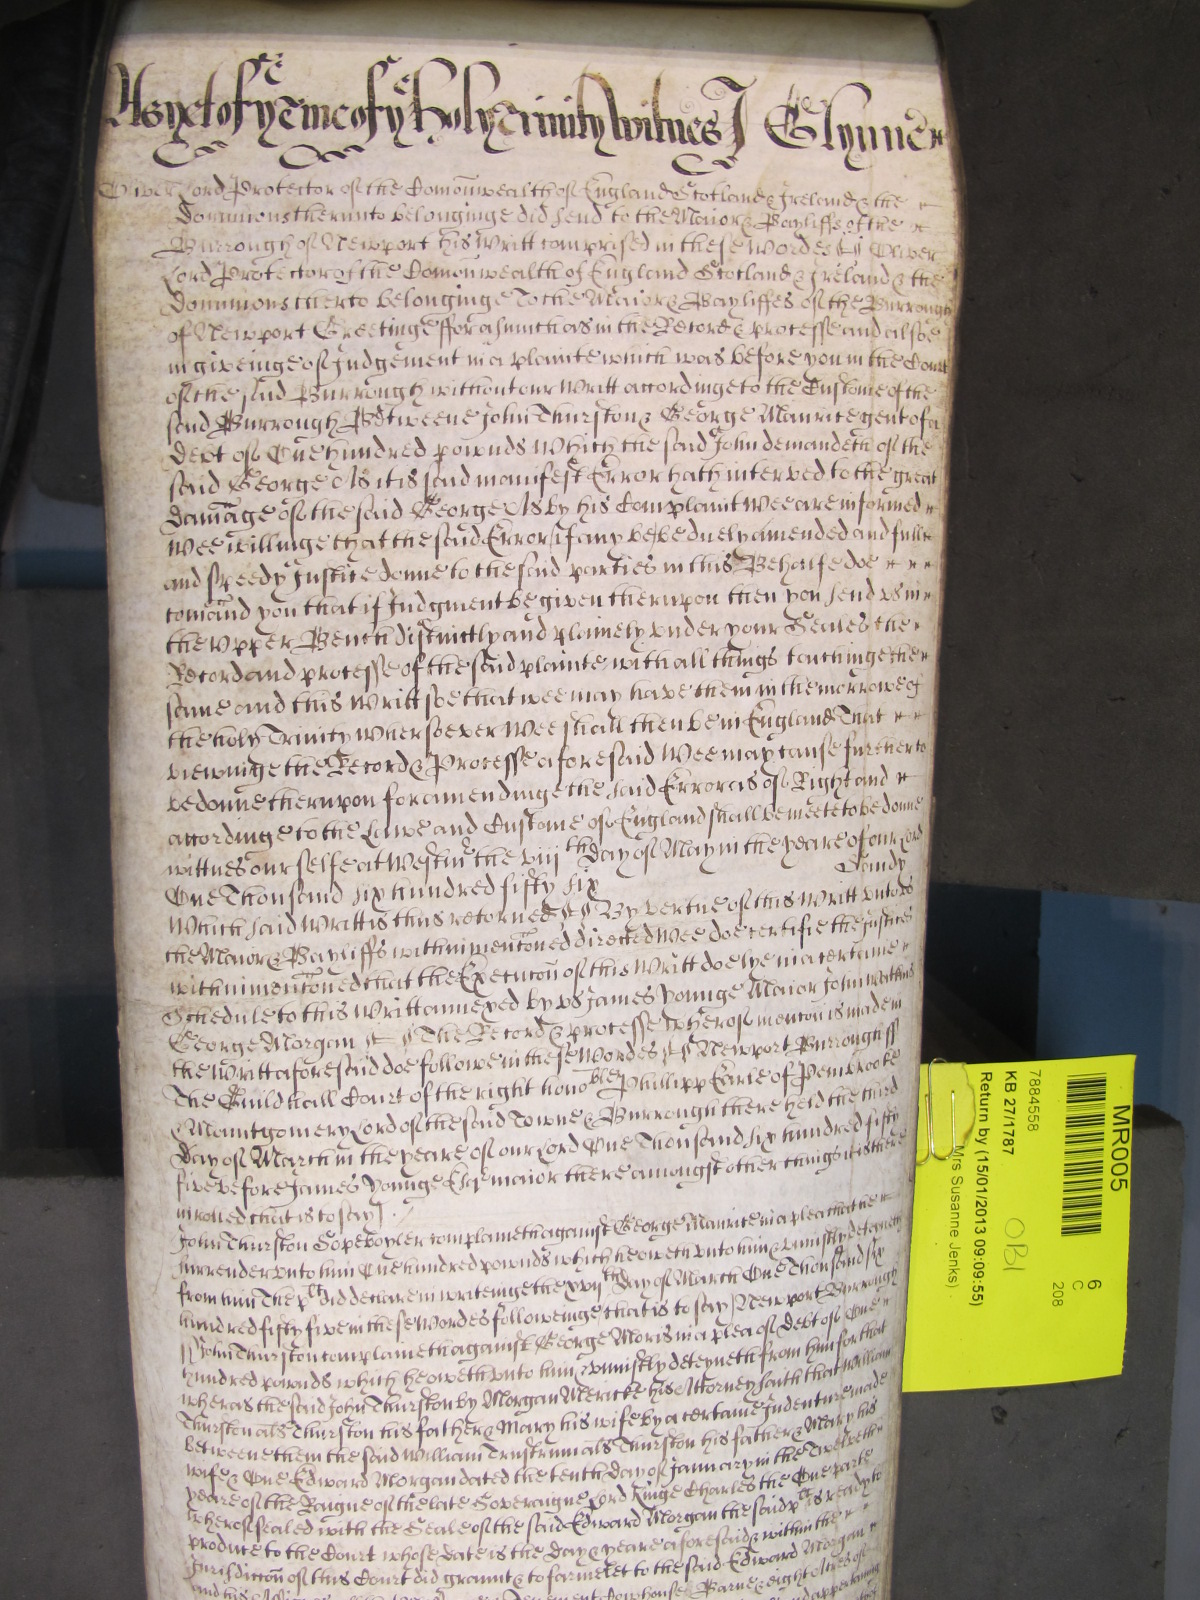 As yet of ye Tme of ye holy Trinity Witnes J Glynne
Oliver Lord Protector of the Comonwealth of England Scotland & Ireland & the
Dominions therunto belonginge did send to the Maior & Bayliffs of the
Burrough of Newport his Writt comprised in these Wordes ss Oliver
Lord Protector of the Comonwealth of England Scotland & Ireland & the
Dominions therto belonginge To the Maior & Bayliffes of the Burrough
of Newport Greetinge fforasmuch as in the Record & processe and alsoe
in giveinge of Judgement in a plainte which was before you in the Court
of the said Burrough without our Writt accordinge to the Custome of the
said Burrough Betweene John Thurston & George Maurice gent of a
Debt of One hundred pownds Which the said John demandeth of the
said George As it is said manifest Error hath interved to the great
Damage of the said George As by his Complaint Wee are informed
Wee willinge that the said Error if any be, be duely amended and full
and speedy Justice donne to the said parties in this Behalfe doe
comand you that if Judgment be given therupon then you send us in
the Upper Bench distinctly and plainely under your Seales the
Record and processe of the said plainte, with all things touchinge the
same and this Writt soe that wee may have them in the morrowe of
the holy Trinity Whersoever Wee shall then be in England That
viewinge the Record & Processe aforesaid Wee may cause further to
be donne therupon for amendinge the said Error as of Right and
accordinge to the Lawe and Custome of England shall be meete to be donne
wittnes our selfe at Westm the viijth Day of May in the yeare of our Lord
One Thousand six hundred fifty six Candy
Which said Writt is thus returned ss By vertue of this Writt unto us
the Maior & Bayliffs within mentoned directed Wee doe certifie the Justices
within mentoned that the Execucon of this Writt doe lye in a certaine
Schedule to this Writt annexed by us James Younge Maior John Watkins
George Morgan ss The Record & processe Wherof mencon is made in
the Writt aforesaid doe followe in these Wordes ss Newport Burrough ss
The Guildhall Court of the right honoble Phillipp Earle of Pembrooke
& Mountgomery Lord of the said Towne & Burrough there held the third
Day of March in the yeare of our Lord One Thousand six hundred fifty
five before James Younge Esqr maior there amongst other things it is there
inrolled that is to say
John Thurston Sopeboyler complaineth against George Maurice in a plea that he
surrender unto him One hundred pownds which he oweth unto him & uniustly deteyneth
from him The plt did declare in writeinge the xvijth day of March One Thousand six
hundred fifty five in these Wordes followeinge, that is to say Newport Burrough
ss John Thurston complaineth against George Moris in a plea of Debt of One
hundred pownds which he oweth unto him & uniustly deteyneth from him for that
wheras the said John Thurston by Morgan Mericke his Attorney saith that William
Thurston als Thurston his father & Mary his wife by a certaine Indenture made
betweene them the said William Trustrum als Thurston his father & Mary his
wife & One Edward Morgan dated the tenth Day of January in the Twelveth
yeare of the Raigne of the late Soveraigne Lord Kinge Charles the One parte
wherof sealed with the Seale of the said Edward Morgan the said plt is ready to
produce to the Court whose Date is the day & yeare aforesaid & within the
Jurisdiccon of this Court did graunt & to farme let to the said Edward Morgan
Barne & eight Acres of
MR005
6
C
208
7884558
KB 27/1787
OBI
Return by (15/01/2013 09:09:55)
Mrs Susanne Jenks)